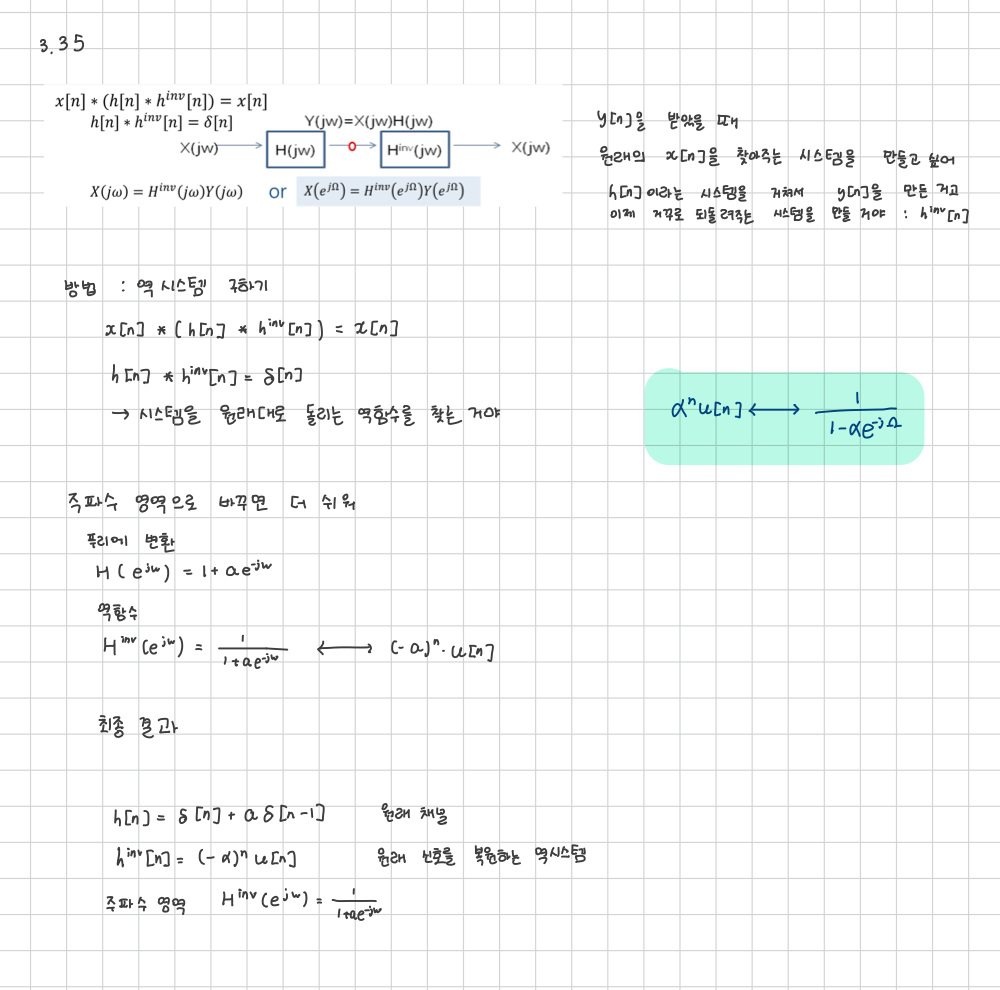 3.35
x[n] ∗ (h[n] ∗ h^{inv}[n]) = x[n]
h[n] ∗ h^{inv}[n] = δ[n]
Y(jw)=X(jw)H(jw)
X(jw) H(jw) H^{inv}(jw) X(jw)
X(jω) = H^{inv}(jω)Y(jω) or X(e^{jΩ}) = H^{inv}(e^{jΩ})Y(e^{jΩ})
y[n]을 받았을 때
원래의 x[n]을 찾아주는 시스템을 만들고 싶어
h[n]이라는 시스템을 거쳐서 y[n]을 만든 거고
이제 거꾸로 되돌려주는 시스템을 만들 거야 : h^{inv}[n]
방법 : 역 시스템 구하기
x[n] * (h[n] * h^{inv}[n]) = x[n]
h[n] * h^{inv}[n] = δ[n]
→ 시스템을 원래대로 돌리는 역함수를 찾는 거야
α^n u[n] ⟷ 1/(1-αe^{-jΩ})
주파수 영역으로 바꾸면 더 쉬워
푸리에 변환
H(e^{jw}) = 1 + ae^{-jw}
역함수
H^{inv}(e^{jw}) = 1/(1+ae^{-jw}) ⟷ (-a)^n · u[n]
최종 결과
h[n] = δ[n] + a δ[n-1] 원래 채널
h^{inv}[n] = (-α)^n u[n] 원래 신호를 복원하는 역시스템
주파수 영역 H^{inv}(e^{jw}) = 1/(1+ae^{-jw})